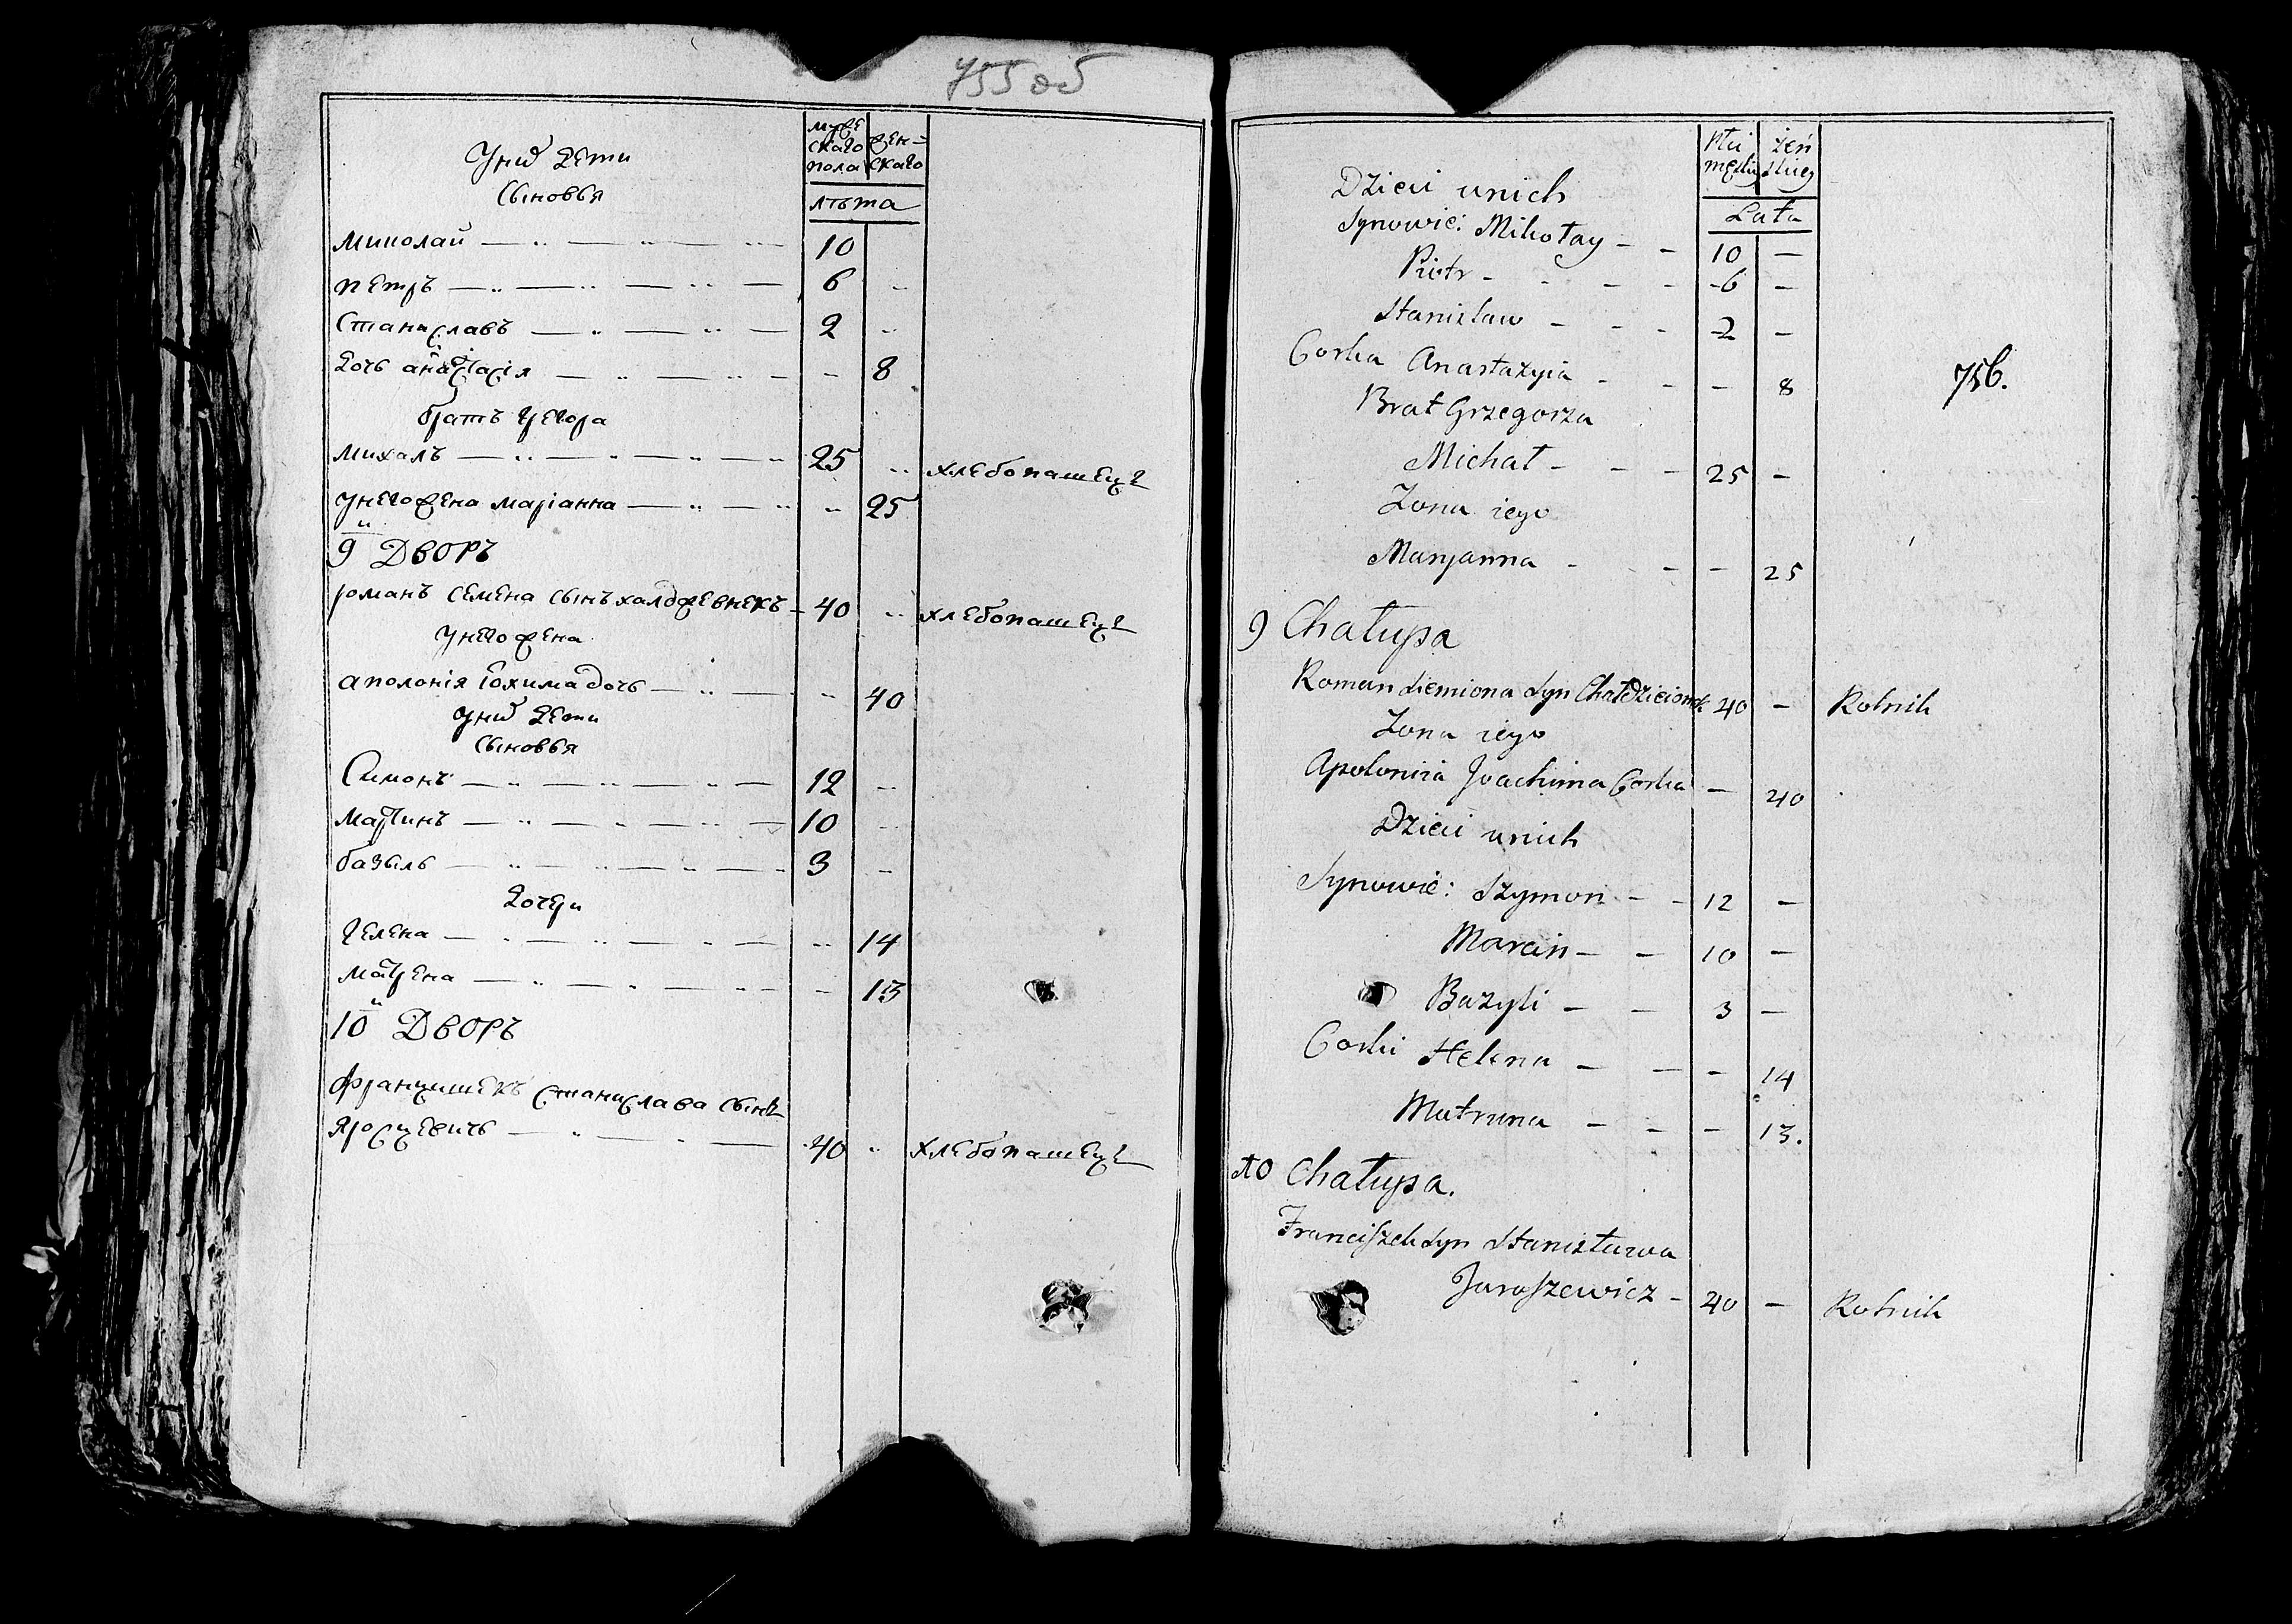 755 об
мужескаго пола
женскаго
лѣта
У них дети
Сыновья
Миколай 10
Петръ 6
Станиславъ 2
дочь анастасія 8
братъ Грегора
михалъ 25 хлебопашецъ
у него жена маріанна 25
9й Дворъ
романъ семена сынъ 40 хлебопашецъ
у него жена
аполонія іохима дочь 40
у них дети
сыновья
Симонъ 12
мартинъ 10
базыль 3
дочери
гелена 14
матрена 13
10й Дворъ
францишекъ станислава сынъ
40 хлебопашецъ
756.
Płci męskiey
żeńskiey
Lata
Dzieci unich
Synowie: Mikołay 10
Piotr 6
Stanisław 2
Corka Anastazyia 8
Brat Grzegorza
Michał 25
Zona iego
Maryanna 25
9 Chałupa
Roman Siemiona Syn 40 Rolnik
Zona iego
Apolonija Joachima Corka 40
Dzieci unich
Synowie: Szymon 12
Marcin 10
Bazyli 3
Corki Helena 14
Matruna 13.
10 Chałupa.
Franciszek Syn Stanisława
Jaroszewicz 40 Rolnik